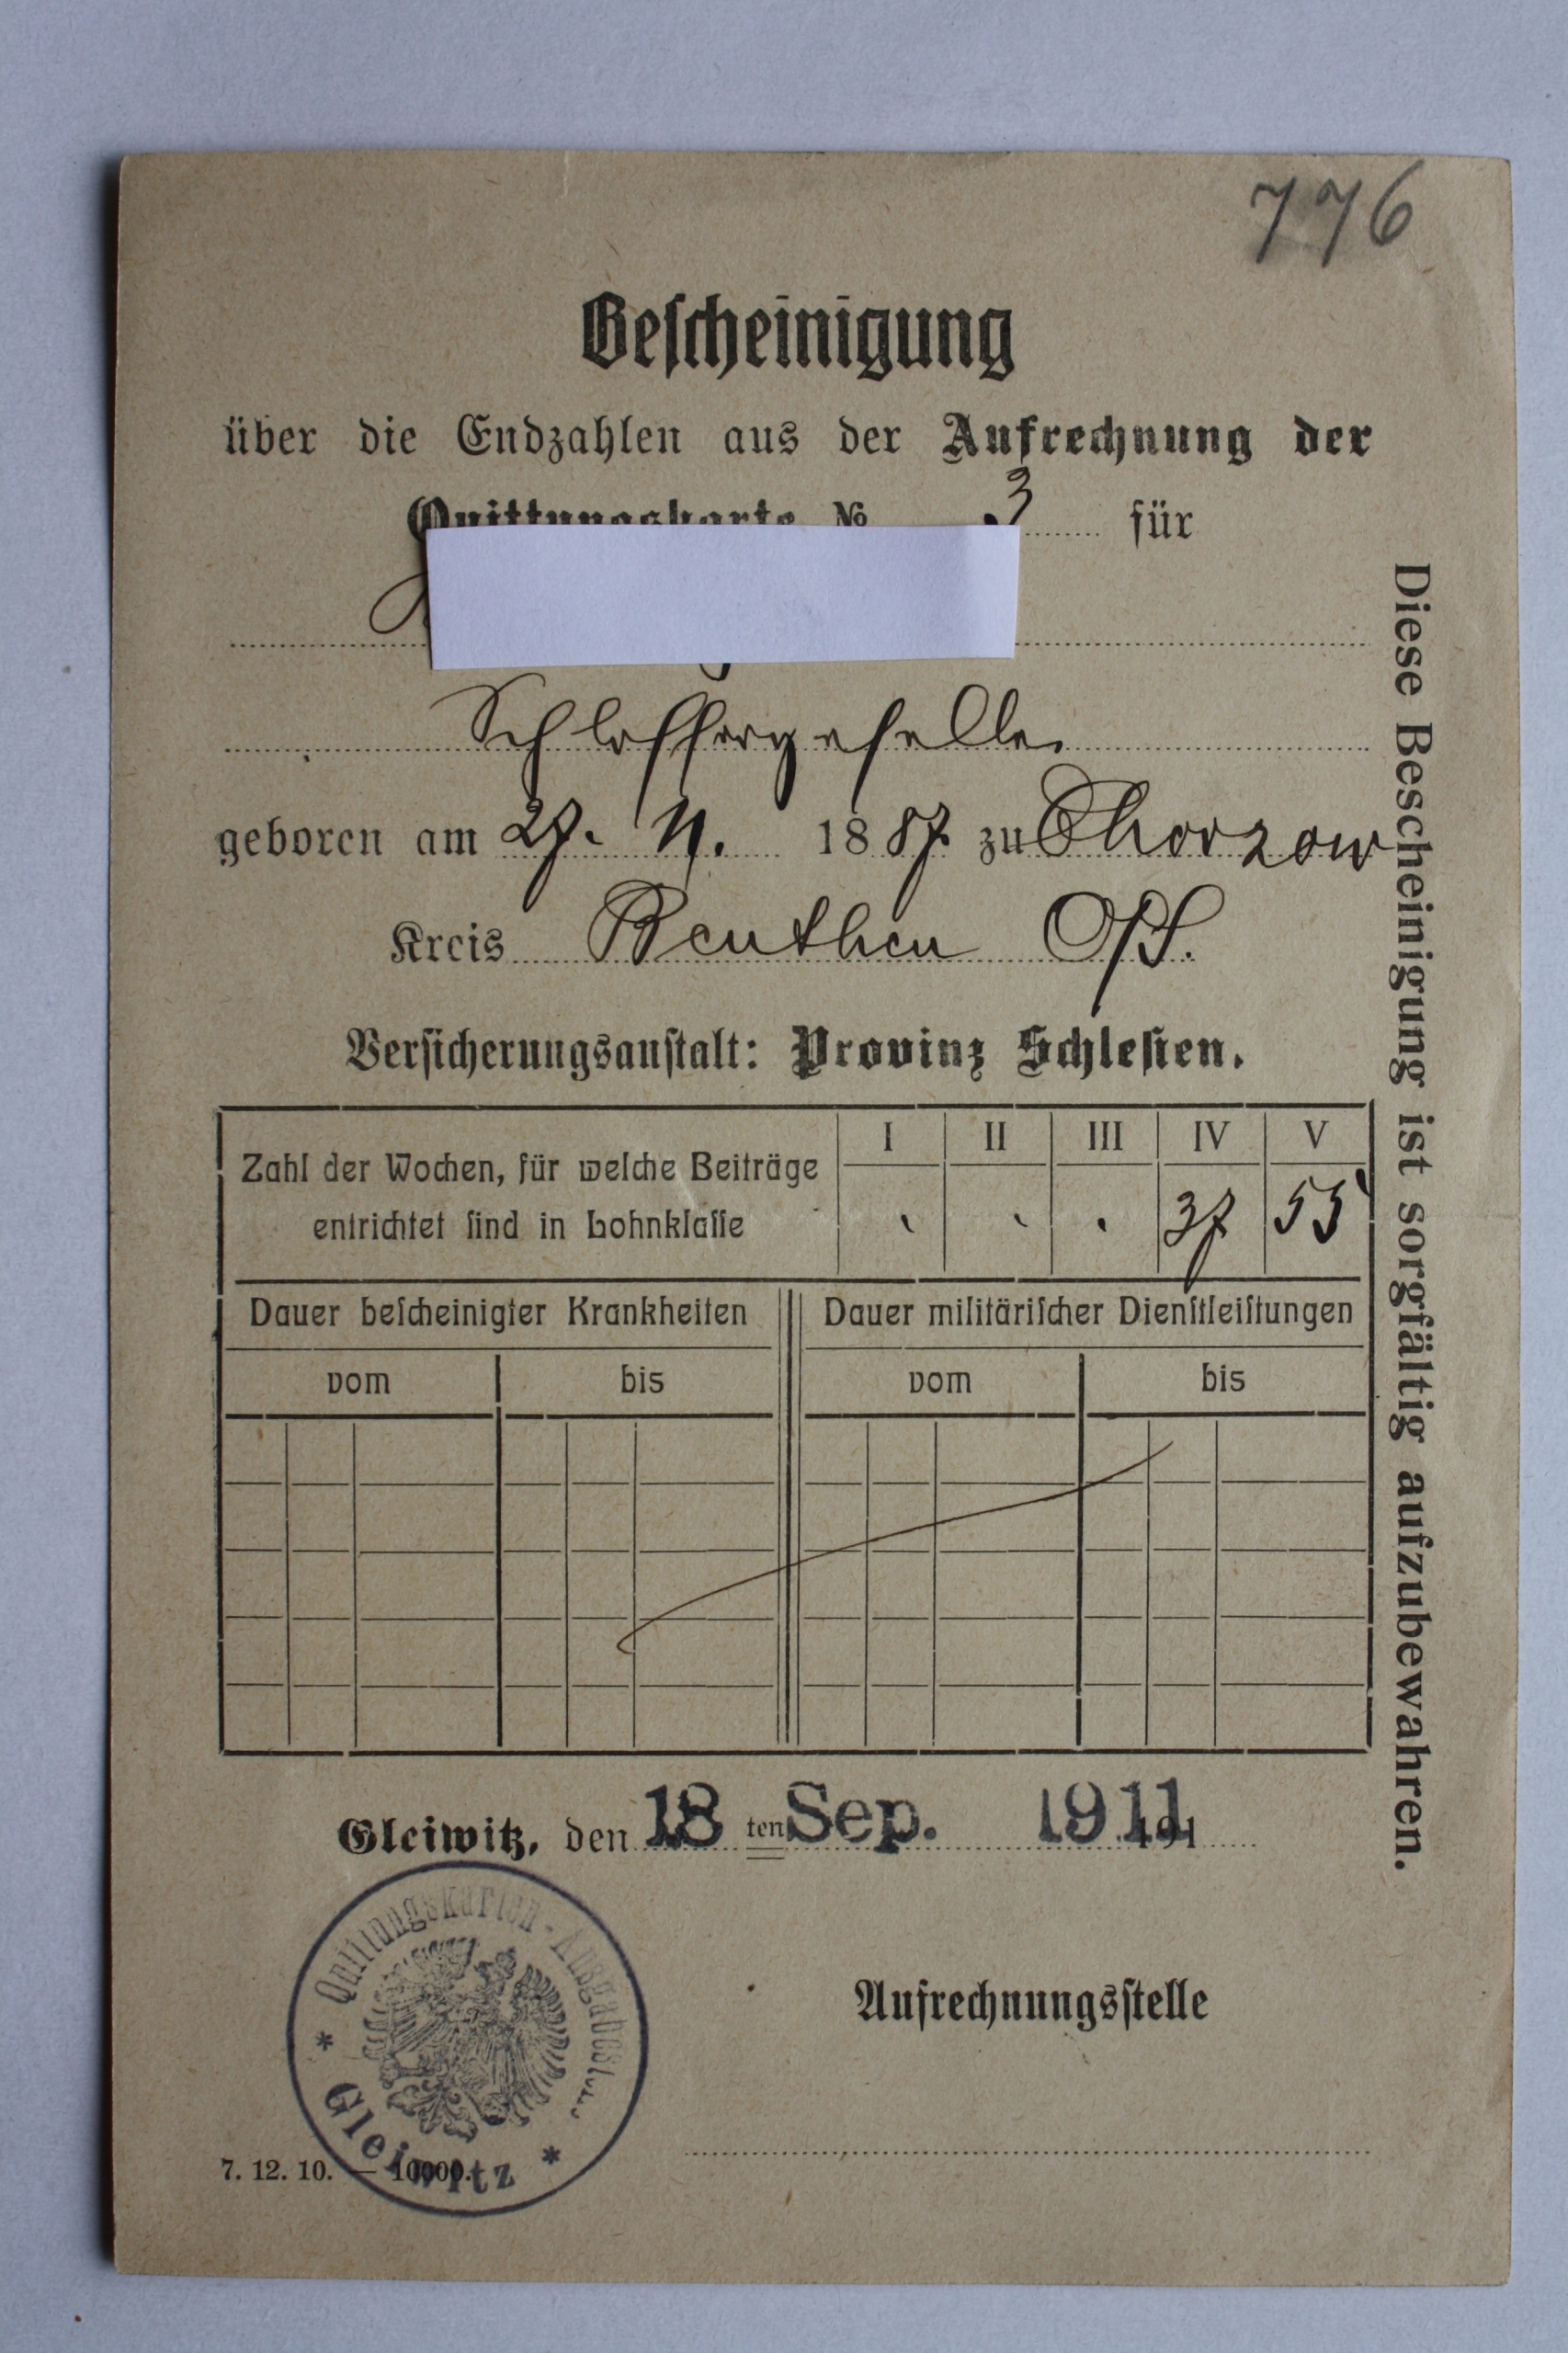 776
Bescheinigung
über die Endzahlen aus der Aufrechnung der
Quittungskarte № 3 für
Schlossergeselle
geboren am 27. 11. 1887. zu Chorzow
Kreis Beuthen O/S.
Versicherungsanstalt: Provinz Schlesien.
Zahl der Wochen, für welche Beiträge entrichtet sind in Lohnklasse
I II III IV V
37 55
Dauer bescheinigter Krankheiten
Dauer militärischer Dienstleistungen
vom bis vom bis
Gleiwitz, den 18 ten Sep. 1911 191
Quittungskarten-Ausgabest
* Gleiwitz *
Aufrechnungsstelle
7. 12. 10. — 10000.
Diese Bescheinigung ist sorgfältig aufzubewahren.